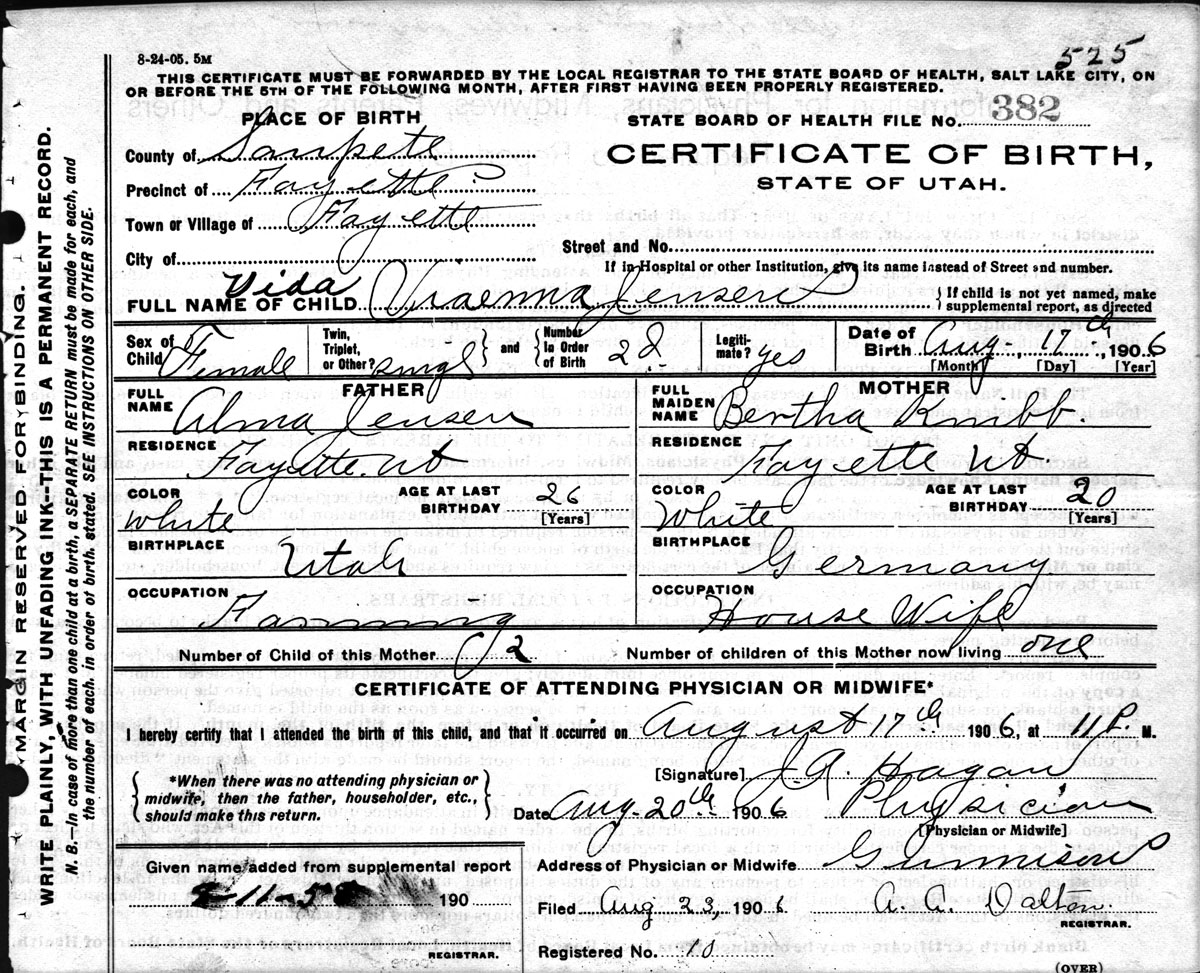 525
8-24-05. 5M
THIS CERTIFICATE MUST BE FORWARDED BY THE LOCAL REGISTRAR TO THE STATE BOARD OF HEALTH, SALT LAKE CITY, ON
OR BEFORE THE 5TH OF THE FOLLOWING MONTH, AFTER FIRST HAVING BEEN PROPERLY REGISTERED.
PLACE OF BIRTH
STATE BOARD OF HEALTH FILE NO. 382
County of Sanpete
CERTIFICATE OF BIRTH,
Precinct of Fayette
STATE OF UTAH.
Town or Village of Fayette
City of
Street and No.
If in Hospital or other Institution, give its name instead of Street and number.
FULL NAME OF CHILD Vida Jensen
If child is not yet named, make
supplemental report, as directed
Sex of Child Female
Twin, Triplet, or Other? and Number In Order of Birth 2d
Legitimate? yes
Date of Birth Aug. 17th, 1906
[Month] [Day] [Year]
FATHER
FULL NAME Alma Jensen
RESIDENCE Fayette Ut
COLOR White
AGE AT LAST BIRTHDAY 26 [Years]
BIRTHPLACE Utah
OCCUPATION Farming
MOTHER
FULL MAIDEN NAME Bertha
RESIDENCE Fayette Ut.
COLOR White
AGE AT LAST BIRTHDAY 20 [Years]
BIRTHPLACE Germany
OCCUPATION House Wife
Number of Child of this Mother 2
Number of children of this Mother now living one
CERTIFICATE OF ATTENDING PHYSICIAN OR MIDWIFE*
I hereby certify that I attended the birth of this child, and that it occurred on August 17th 1906, at 11 P. M.
*When there was no attending physician or
midwife, then the father, householder, etc.,
should make this return.
[Signature] J. A. Hagan
Date Aug. 20th 1906 Physician
[Physician or Midwife]
Given name added from supplemental report
190
REGISTRAR.
Address of Physician or Midwife Gunnison
Filed Aug. 23, 1906 A. G. Dalton
REGISTRAR.
Registered No. 10
(OVER)
MARGIN RESERVED FOR BINDING.
WRITE PLAINLY, WITH UNFADING INK—THIS IS A PERMANENT RECORD.
N. B.—In case of more than one child at a birth, a SEPARATE RETURN must be made for each, and
the number of each, in order of birth, stated. SEE INSTRUCTIONS ON OTHER SIDE.